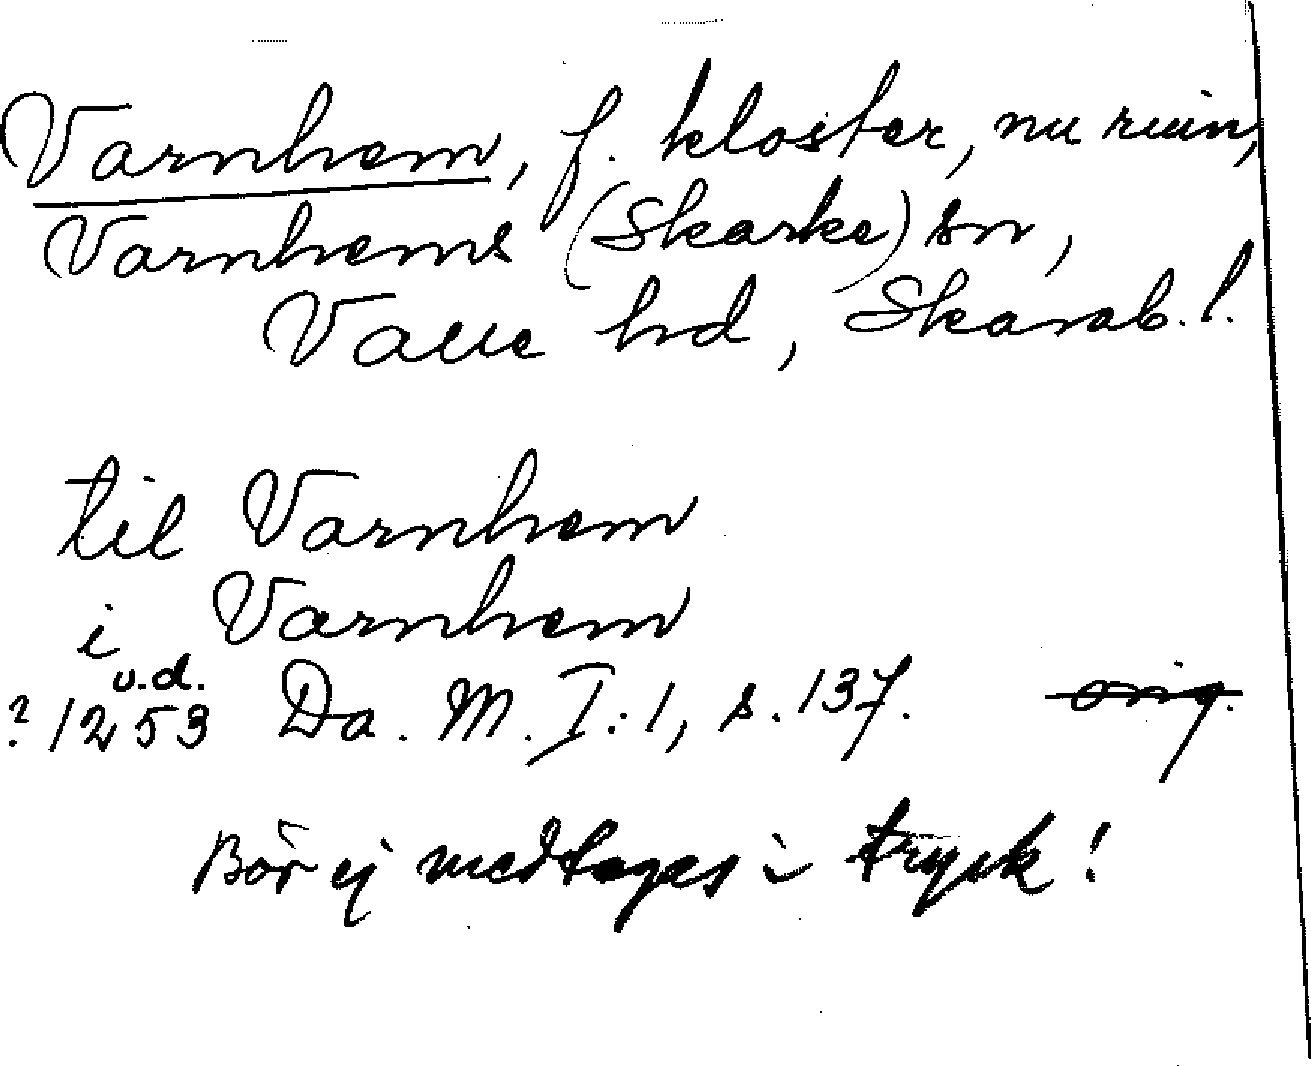 Varnhem, f. kloster, nu ruin,
Varnhems (Skarke) sn,
Valle hd, Skarab. l.
til Varnhem
i Varnhem
u.d.
? 1253 Da. M. I: 1, s. 137. orig.
Bör ej medtages i tryck!